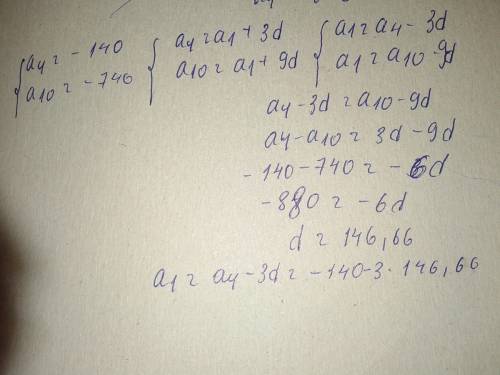 { a4 = -140 { a4 = a1 + 3d { a1 = a4 - 3d
a10 = -740 a10 = a1 + 9d a1 = a10 - 9d
a4 - 3d = a10 - 9d
a4 - a10 = 3d - 9d
- 140 - 740 = - 6d
- 880 = - 6d
d = 146,66
a1 = a4 - 3d = - 140 - 3 · 146,66